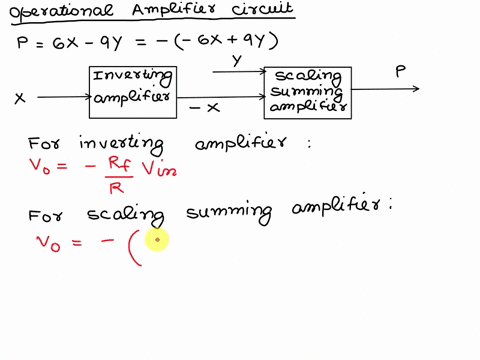 Operational Amplifier Circuit
P = 6X - 9Y = -(-6X + 9Y)
X
Inverting
amplifier
- X
Y
Scaling
summing
amplifier
P
For inverting amplifier :
V₀ = - Rf/R Vin
For scaling summing amplifier :
V₀ = - (